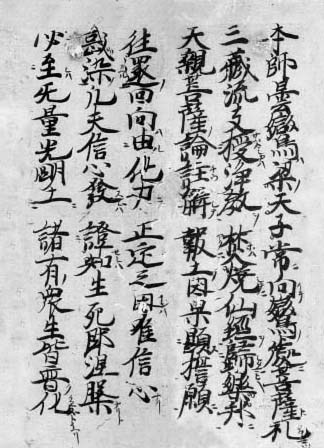 本師曇鸞梁天子 常向鸞處菩薩礼
三蔵流支授淨教 焚燒仙經歸樂邦
天親菩薩論註解 報土因果顯誓願
往還回向由他力 正定之因唯信心
惑染凡夫信心發 證知生死即涅槃
必至无量光明土 諸有衆生皆普化